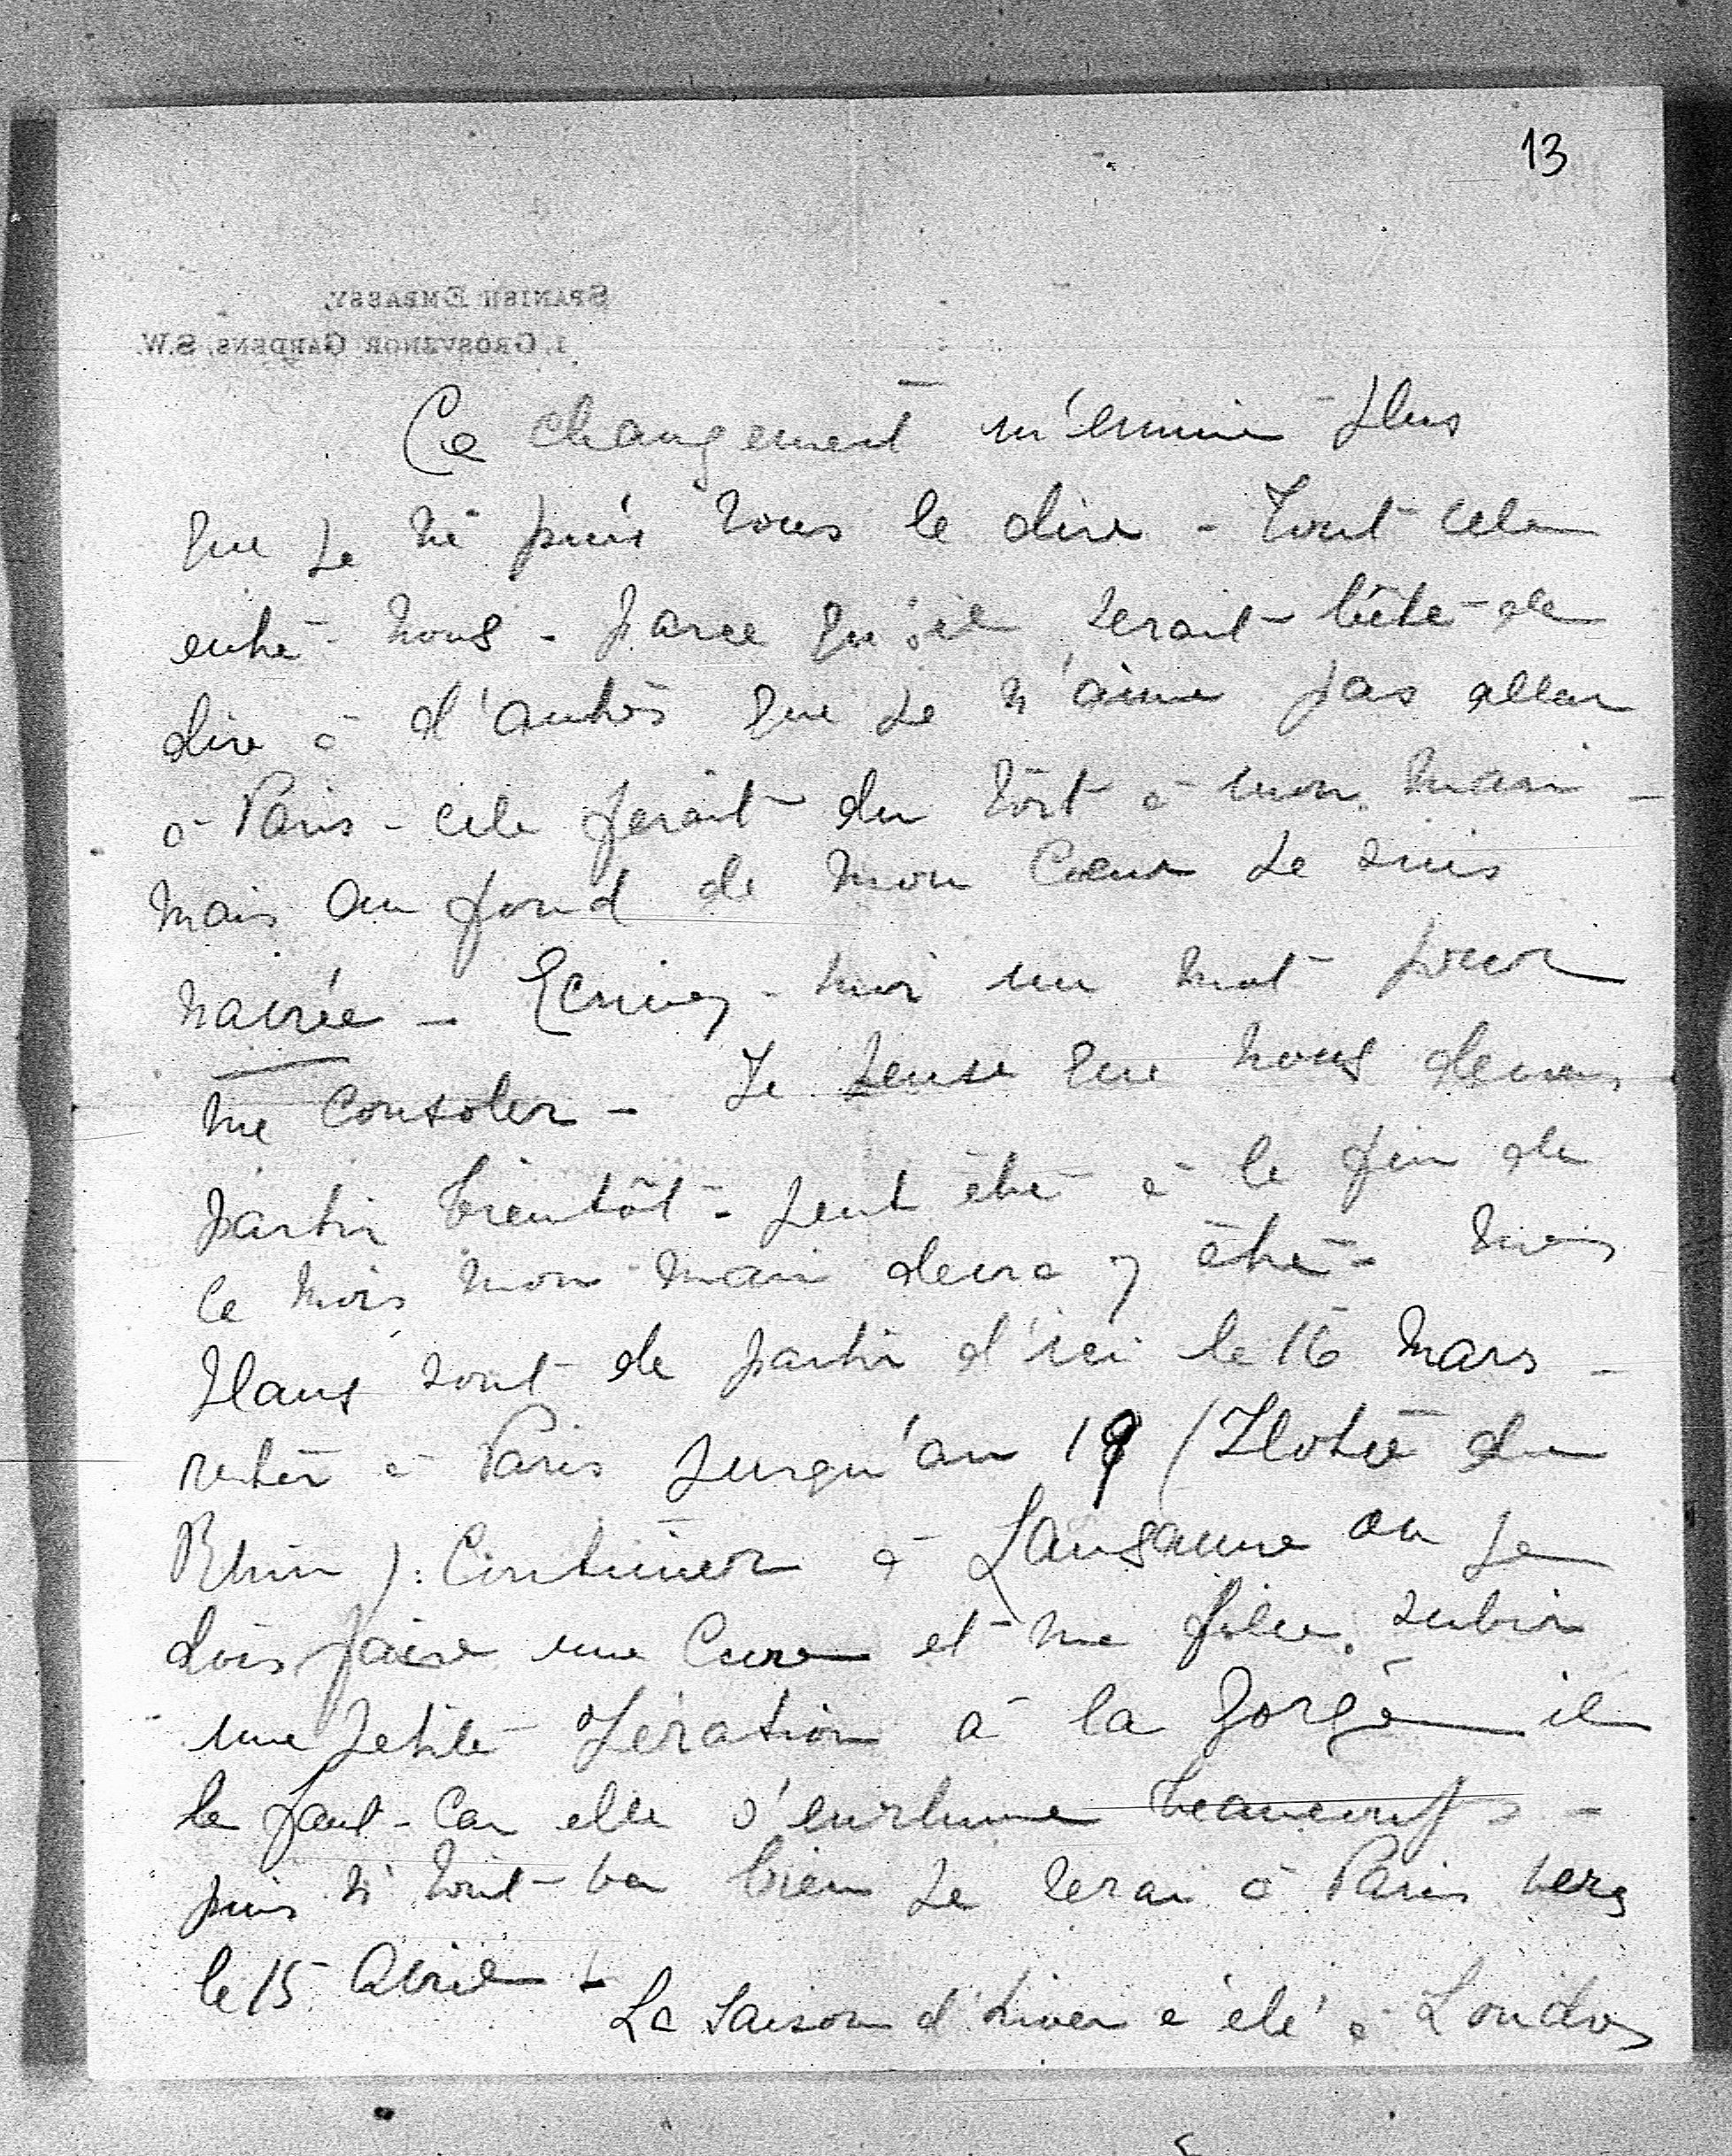 13
SPANISH EMBASSY,
1, GROSVENOR GARDENS, S.W.
Ce changement m'ennuie plus
que je ne puis vous le dire - Tout cela
entre nous - parce qu'il serait bête de
dire à d'autres que je n'aime pas aller
à Paris - cela ferait du tort à mon mari -
mais au fond de mon coeur je suis
navrée - Ecrivez-moi un mot pour
me consoler - Je pense que nous devons
partir bientôt - peut être à la fin de
ce mois mon mari devra y être - Mes
plans sont de partir d'ici le 16 Mars -
rester à Paris jusqu'au 19 (Hotel du
Rhin). Continuer à Lausanne ou je
dois faire une cure et ma fille subir
une petite opération à la gorge il
le faut - car elle s'enrhume beaucoup -
puis si tout va bien je serai à Paris vers
le 15 Avril -
La saison d'hiver a été à Londres